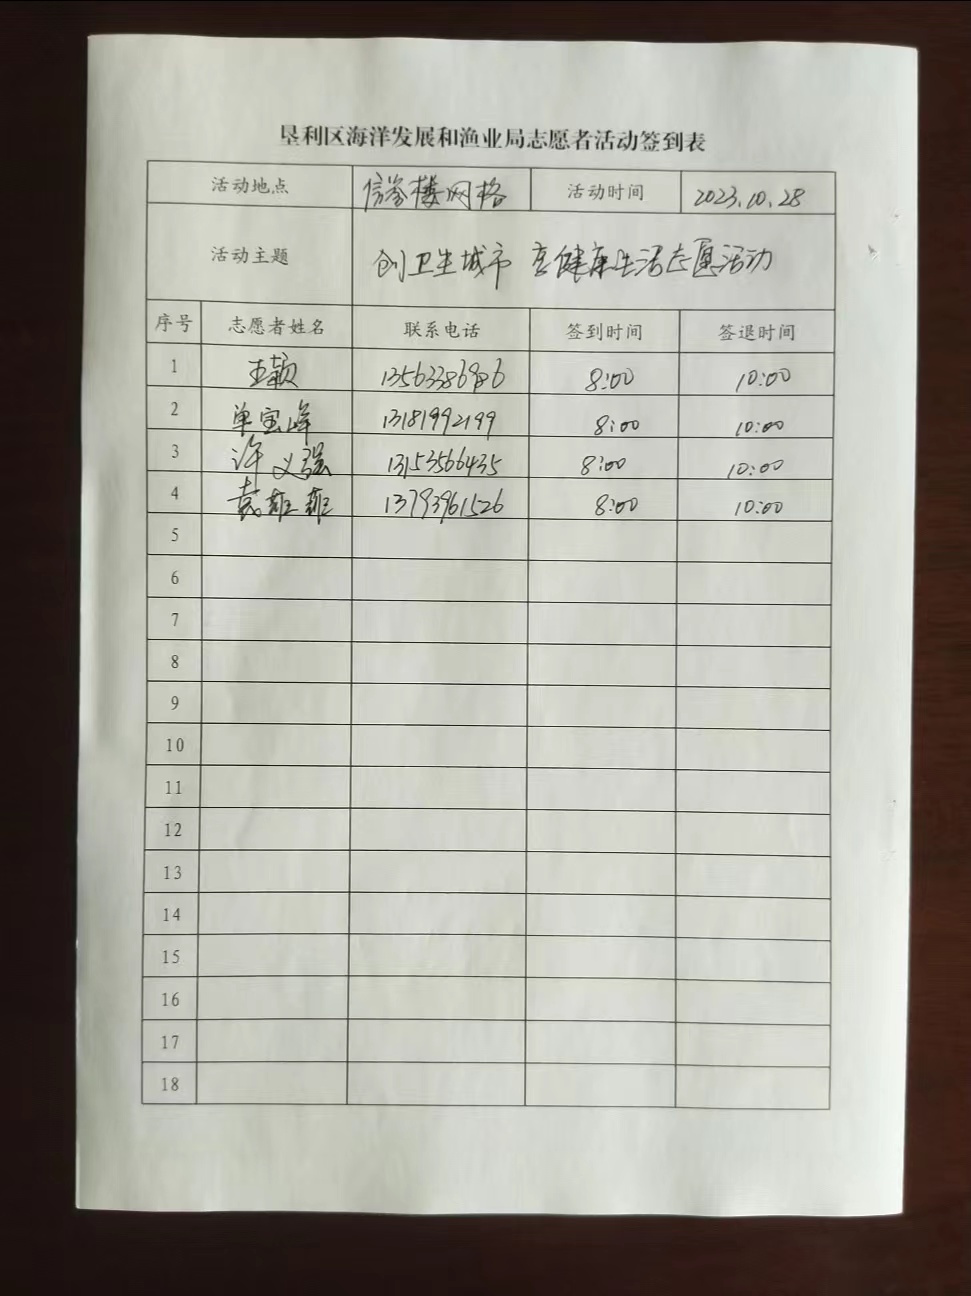 垦利区海洋发展和渔业局志愿者活动签到表
活动地点 信誉楼网格 活动时间 2023.10.28
活动主题 创卫生城市 享健康生活志愿活动
序号 志愿者姓名 联系电话 签到时间 签退时间
1 王颖 13563386986 8:00 10:00
2 单宝峰 13181992199 8:00 10:00
3 许义强 13153566435 8:00 10:00
4 13793961526 8:00 10:00
5
6
7
8
9
10
11
12
13
14
15
16
17
18